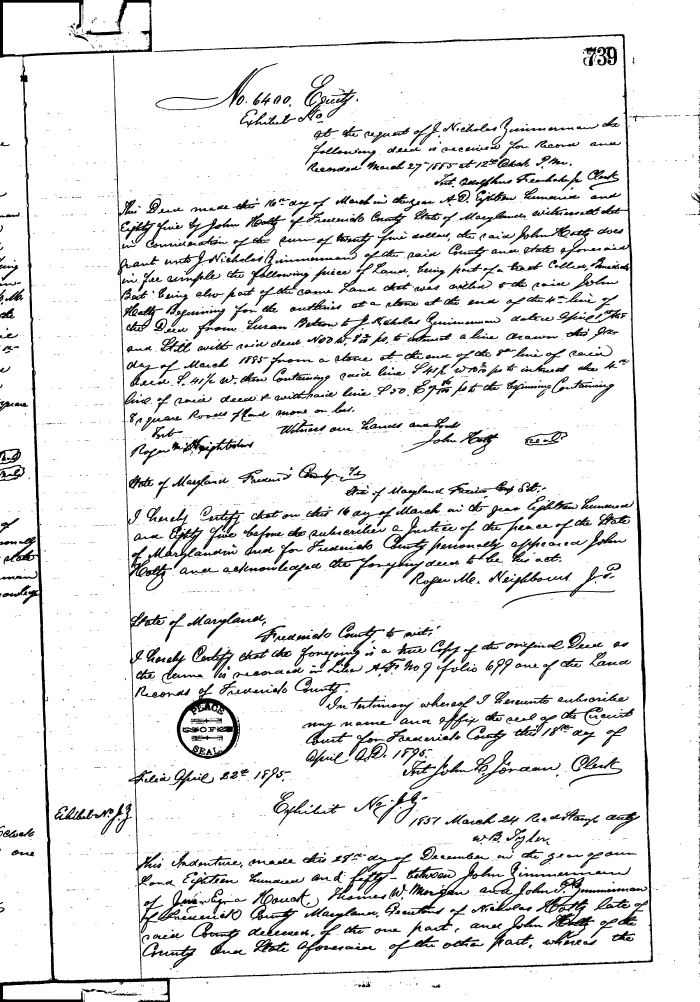 739
No. 6400. Equity.
Exhibit No
At the request of J. Nicholas Zimmerman the
following deed is received for Record and
Recorded March 27th 1885 at 12 O'Clock P.M.
Test Adolphus Fearhake Jr Clerk
This Deed made this 16th day of March in the year A.D. Eighteen hundred and
Eighty five by John Hotty of Frederick County State of Maryland, witnesseth that
in consideration of the sum of twenty five dollars, the said John Hotty does
grant unto J. Nicholas Zimmerman of the said County and State aforesaid
in fee simple the following piece of Land, being part of a tract Called
being also part of the same Land that was to the said John
Hotty Beginning for the outlines at a stone at the end of the 4th line of
the Deed from Susan to J. Nicholas Zimmerman dated April
and Still with said deed N 50 W. ps, to intersect a line drawn this
day of March 1885 from a stone at the end of the 8th line of said
deed S. 41½ W. then Containing said line S 41½ W ps to intersect the 4th
line of said deed & with said line S 50. E ps to the beginning Containing
8 square Roods of land more or less.
Test Witness our hands and Seals
Roger M. Neighbours John Hotty (seal)
State of Maryland Frederick County
State of Maryland
I hereby Certify that on this 16 day of March in the year Eighteen hundred
and Eighty five before the subscriber a Justice of the peace of the State
of Maryland in and for Frederick County personally appeared John
Hotty and acknowledged the foregoing deed to be his act.
Roger M. Neighbours J.P.
State of Maryland,
Frederick County to wit:
I hereby Certify that the foregoing is a true Copy of the original Deed as
the same is recorded in Liber A.F. No 9 folio 699 one of the Land
Records of Frederick County.
In testimony whereof I hereunto subscribe
my name and affix the seal of the Circuit
Court for Frederick County this 18th day of
April A.D. 1895.
PLACE
OF
SEAL.
Test John L. Jordan, Clerk
Filed April 22d 1895.
Exhibit No J.Z.
Exhibit No J.Z.
1851 March 24 Recd Stamp duty
W.B. Tyler
This Indenture, made this 28th day of December in the year of our
Lord Eighteen hundred and fifty, between John Zimmerman
of Houck, Thomas W. Morgan and John P. Zimmerman
of Frederick County Maryland, Executors of Nicholas Hotty late of
said County deceased, of the one part, and John Hotty of the
County and State aforesaid of the other part, whereas the